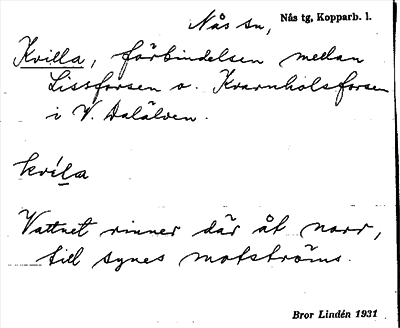 Nås sn, Nås tg, Kopparb. l.
Kvilla, förbindelsen mellan
Lissforsen o. Kvarnholsforsen
i V. Dalälven.
kvila
Vattnet rinner där åt norr,
till synes motströms.
Bror Lindén 1931